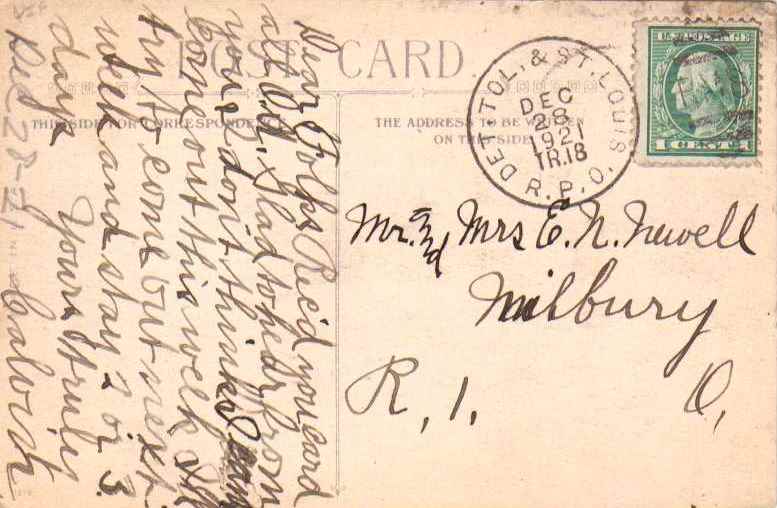 POST CARD.
THIS SIDE FOR CORRESPONDENCE
THE ADDRESS TO BE WRITTEN
ON THIS SIDE
DET. & TOL. & ST. LOUIS
DEC
28
1921
TR.18
R.P.O.
U.S. POSTAGE
1 CENT 1
Mr. and Mrs E. N. Newell
Milbury
R. 1. O.
Dear Folks Rec'd you card
all O.K. Glad to hear from
you. I don't think I can
come out this week I'll
try & come out next
week and stay 2 or 3
days. Yours truly
Dec 28-21 Calvin